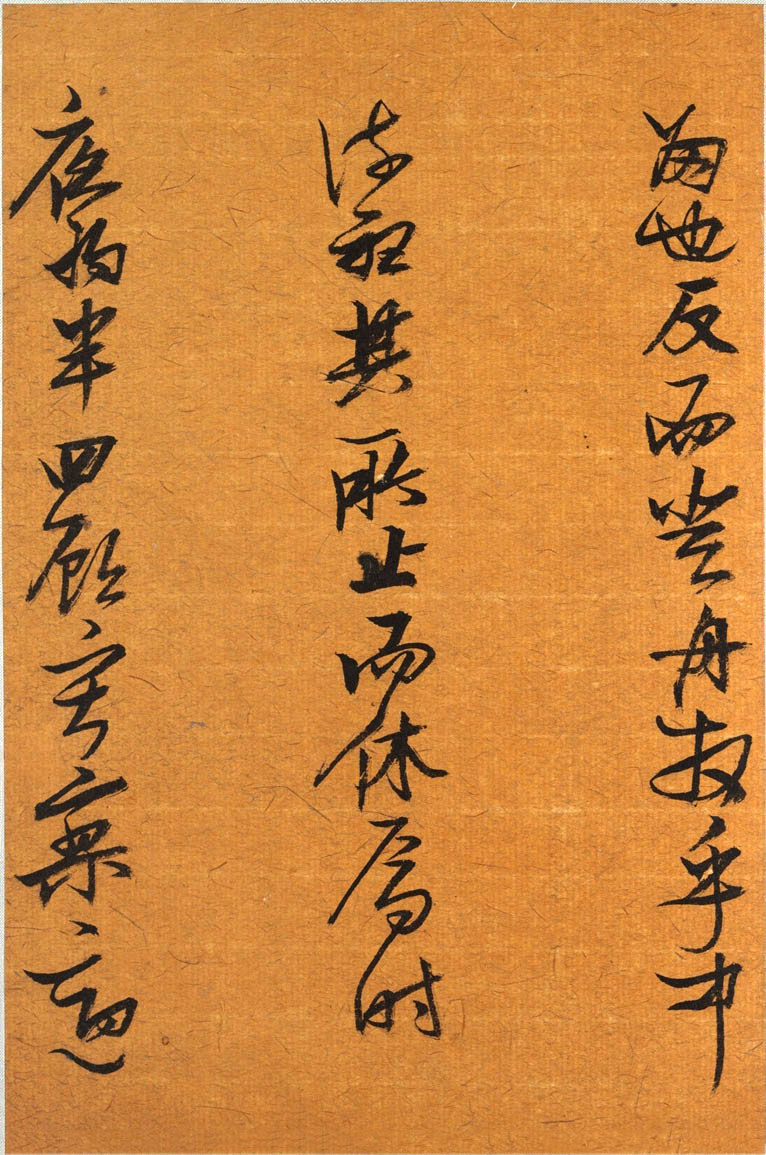 留也反而登舟放乎中
流聽其所止而休焉時
夜將半四顧寂寥適